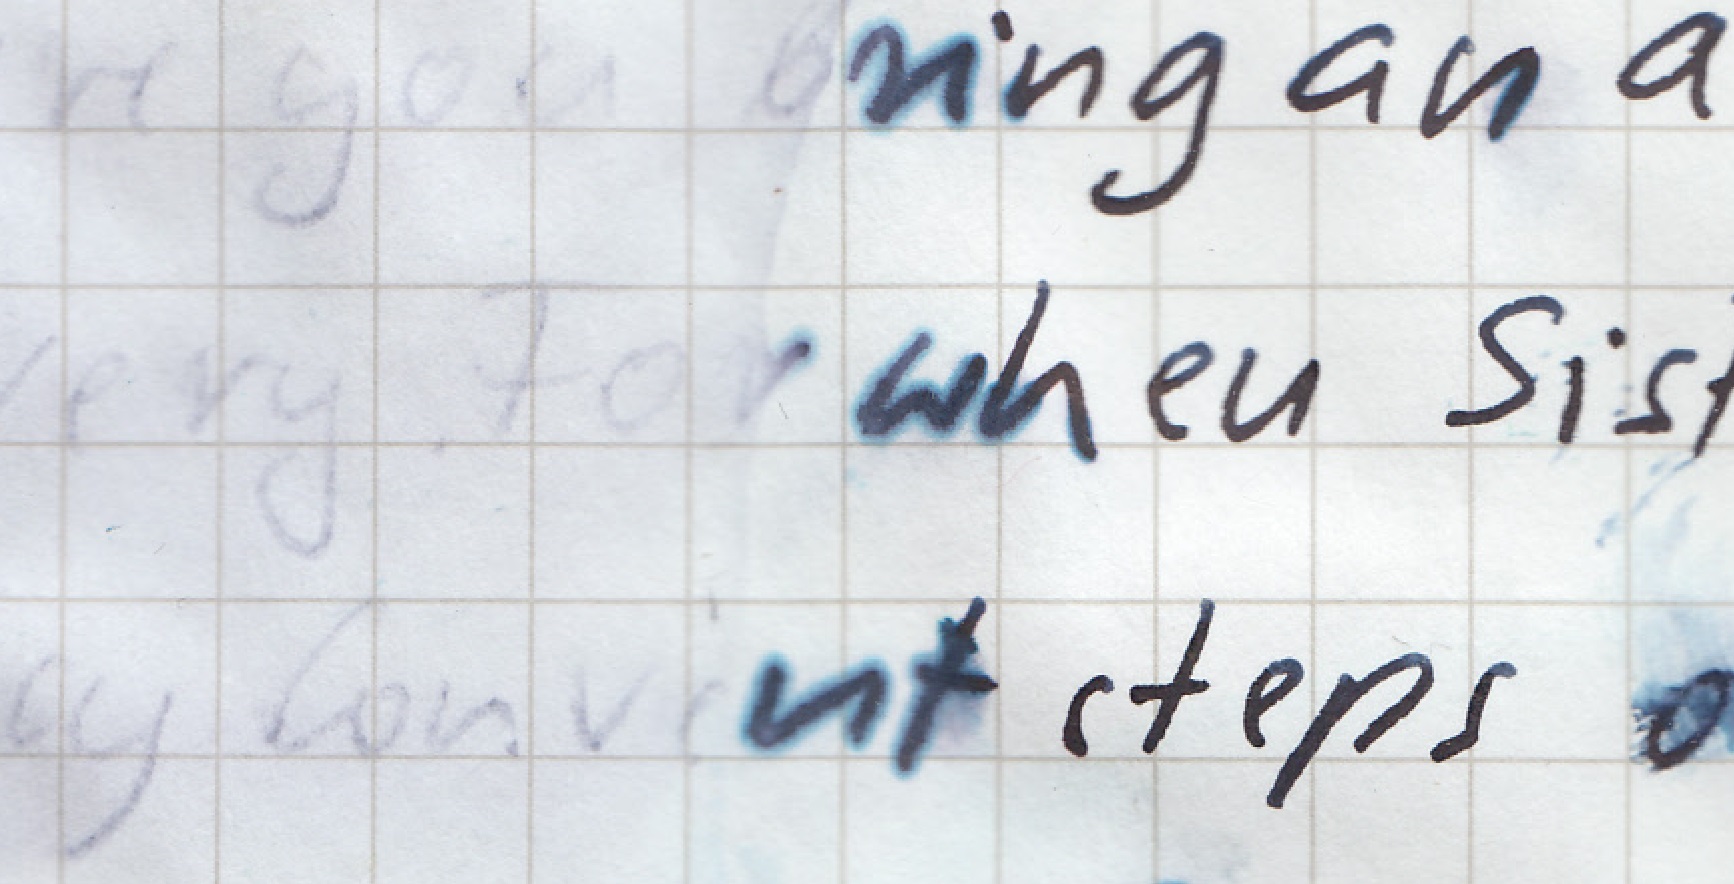 re you ning an a
very for when Sist
convent steps o